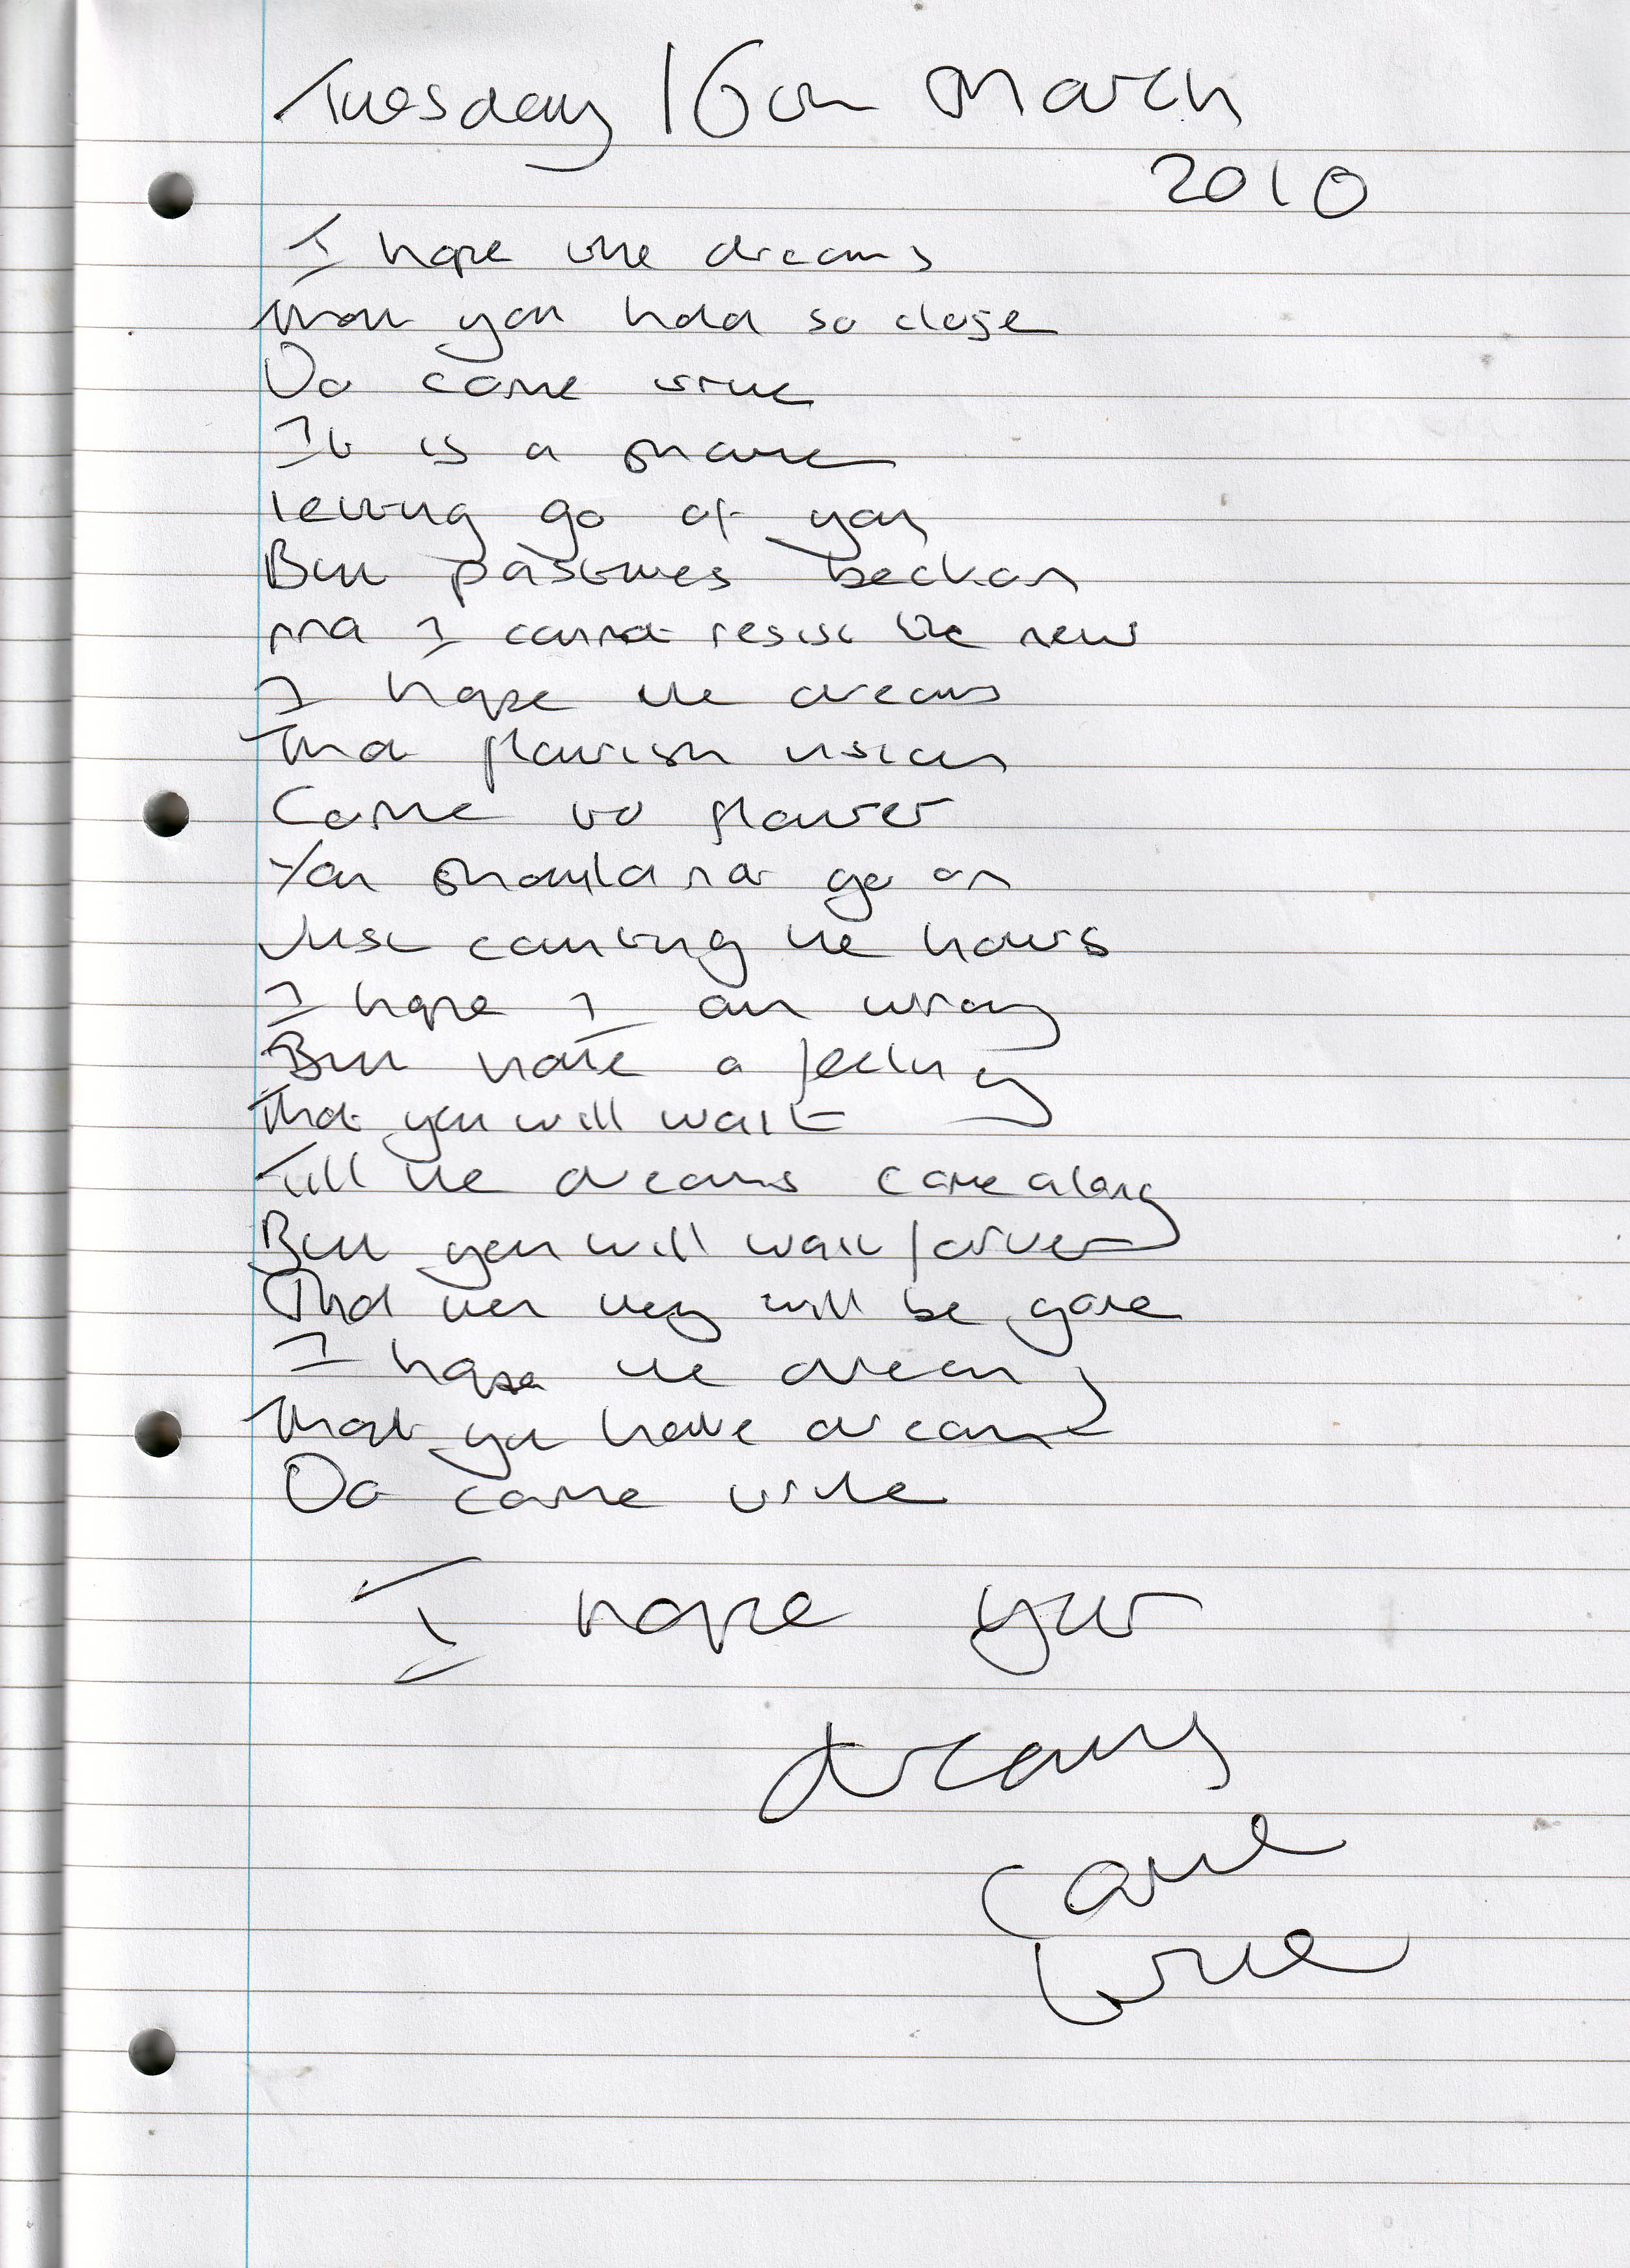 Tuesday 16th March
2010
I hope the dreams
that you hold so close
Do come true
It is a shame
letting go of you
But pastures beckon
And I cannot resist the new
I hope the dreams
That flourish vision
Come to flower
You should not go on
Just counting the hours
I hope I am wrong
But have a feeling
That you will wait
Till the dreams come along
But you will wait forever
And then they will be gone
I hope the dreams
That you have dreamt
Do come true
I hope your
dreams
come
true